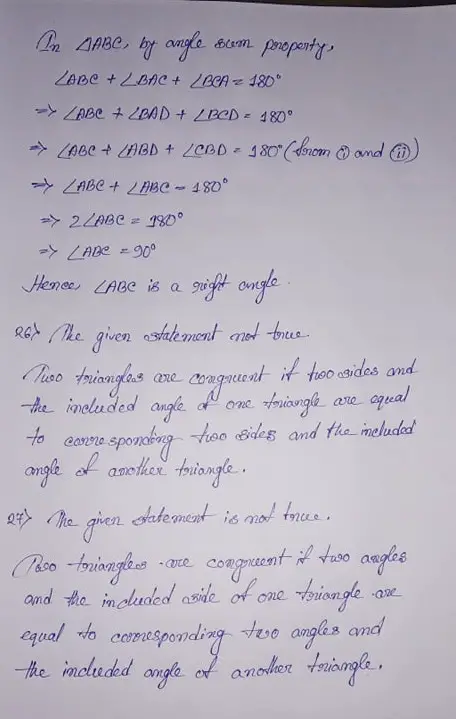 In △ABC, by angle sum property,
∠ABC + ∠BAC + ∠BCA = 180°
=> ∠ABC + ∠BAD + ∠BCD = 180°
=> ∠ABC + ∠ABD + ∠CBD = 180° (from (i) and (ii))
=> ∠ABC + ∠ABC = 180°
=> 2∠ABC = 180°
=> ∠ABC = 90°
Hence, ∠ABC is a right angle.
26> The given statement not true.
Two triangles are congruent if two sides and
the included angle of one triangle are equal
to corresponding two sides and the included
angle of another triangle.
27> The given statement is not true.
Two triangles are congruent if two angles
and the included side of one triangle are
equal to corresponding two angles and
the included angle of another triangle.